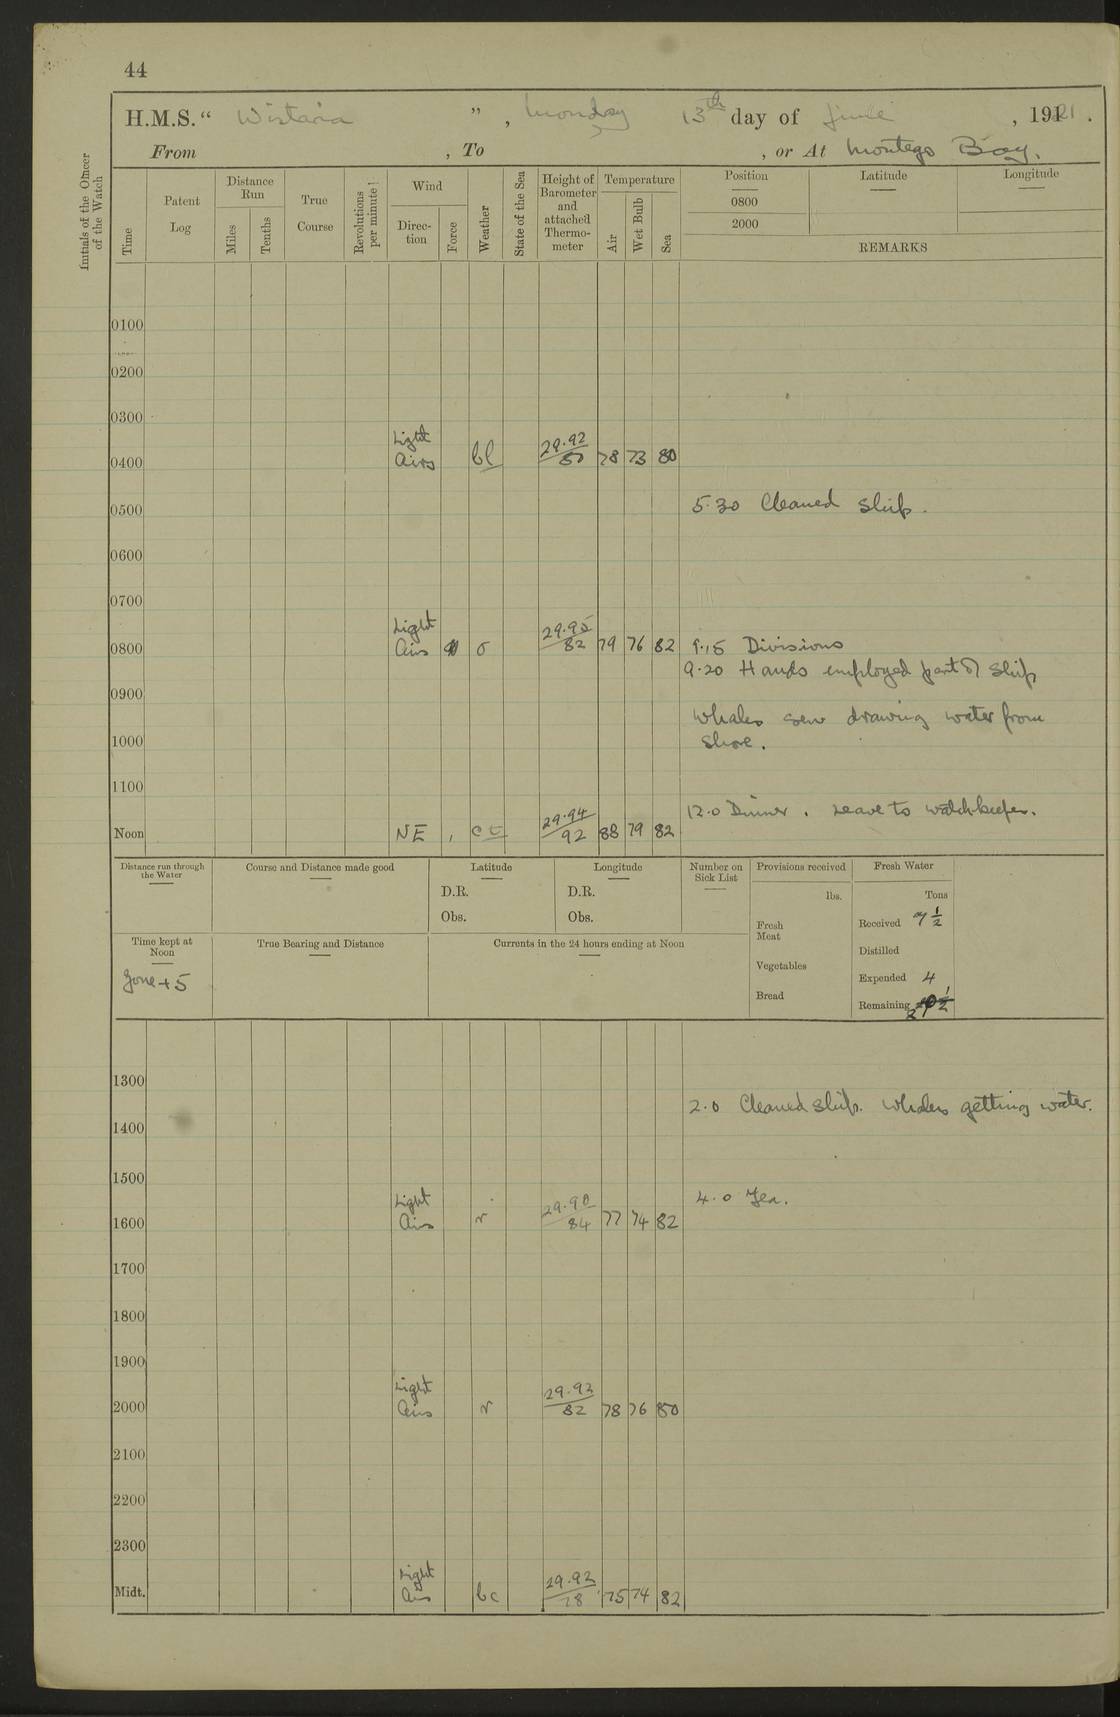 44
H.M.S. “ Wistaria ” , Monday 13th day of June , 1921 .
From , To , or At Montego Bay.
Initials of the Officer of the Watch
Time
Patent Log
Distance Run
Miles
Tenths
True Course
Revolutions per minute
Wind
Direction
Force
Weather
State of the Sea
Height of Barometer and attached Thermometer
Temperature
Air
Wet Bulb
Sea
Position
Latitude
Longitude
0800
2000
REMARKS
0100
0200
0300
Light 29.92
0400 Airs bc 80 78 73 80
0500 5.30 Cleaned Ship.
0600
0700
Light 29.95
0800 Airs o 82 79 76 82 9.15 Divisions
9.20 Hands employed part of Ship
0900
Whalers crew drawing water from
1000 shore.
1100
12.0 Dinner. Leave to watchkeepers.
29.94
Noon NE 1 92 88 79 82
Distance run through the Water
Course and Distance made good
Latitude
D.R.
Obs.
Longitude
D.R.
Obs.
Number on Sick List
Provisions received
lbs.
Fresh Meat
Vegetables
Bread
Fresh Water
Tons
Received 7 1/2
Distilled
Expended 4
Remaining
Time kept at Noon
Zone +5
True Bearing and Distance
Currents in the 24 hours ending at Noon
1300
2.0 Cleaned Ship. Whalers getting water.
1400
1500
Light 29.90 4.0 Tea.
1600 Airs r 84 77 74 82
1700
1800
1900
Light 29.92
2000 Airs r 82 78 76 80
2100
2200
2300
Light 29.92
Midt. Airs bc 78 75 74 82